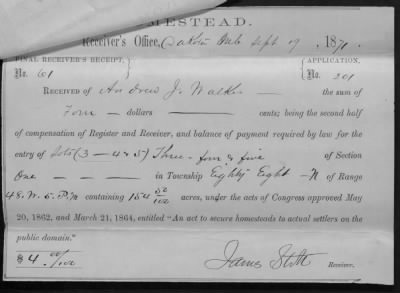 OMESTEAD.
Receiver's Office, Dakota Neb Sept 9, 1871.
FINAL RECEIVER'S RECEIPT, APPLICATION,
No. 61 No. 201
RECEIVED OF Andrew J. Walker — the sum of
Four — dollars — cents; being the second half
of compensation of Register and Receiver, and balance of payment required by law for the
entry of Lots (3 - 4 & 5) Three - four & five of Section
One — — — in Township Eighty Eight - N of Range
48. W. 5. P. M containing 154 50/100 acres, under the acts of Congress approved May
20, 1862, and March 21, 1864, entitled "An act to secure homesteads to actual settlers on the
public domain."
$4. 00/100 James Stott Receiver.